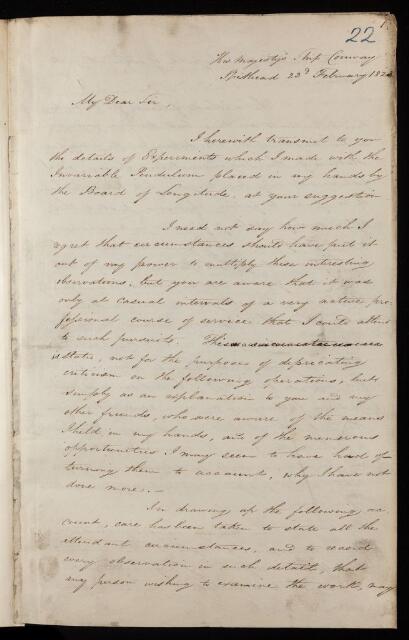 22
His Majesty's Ship Conway
Spithead 22d February 182
My Dear Sir,
I herewith transmit to you
the details of Experiments which I made with the
Invariable Pendulum placed in my hands by
the Board of Longitude, at your suggestion
I need not say how much I
regret that circumstances should have put it
out of my power to multiply these interesting
observations, but you are aware that it was
only at casual intervals of a very active pro-
fessional course of service that I could attend
to such pursuits. This
is stated, not for the purposes of depricating
criticism on the following operations, but
simply as an explanation to you and my
other friends, who were aware of the means
I held in my hands, and of the numerous
opportunities I may seem to have had of
turning them to account, why I have not
done more.—
In drawing up the following ac-
count, care has been taken to state all the
attendant circumstances, and to record
every observation in such detail, that
any person wishing to examine the work, may